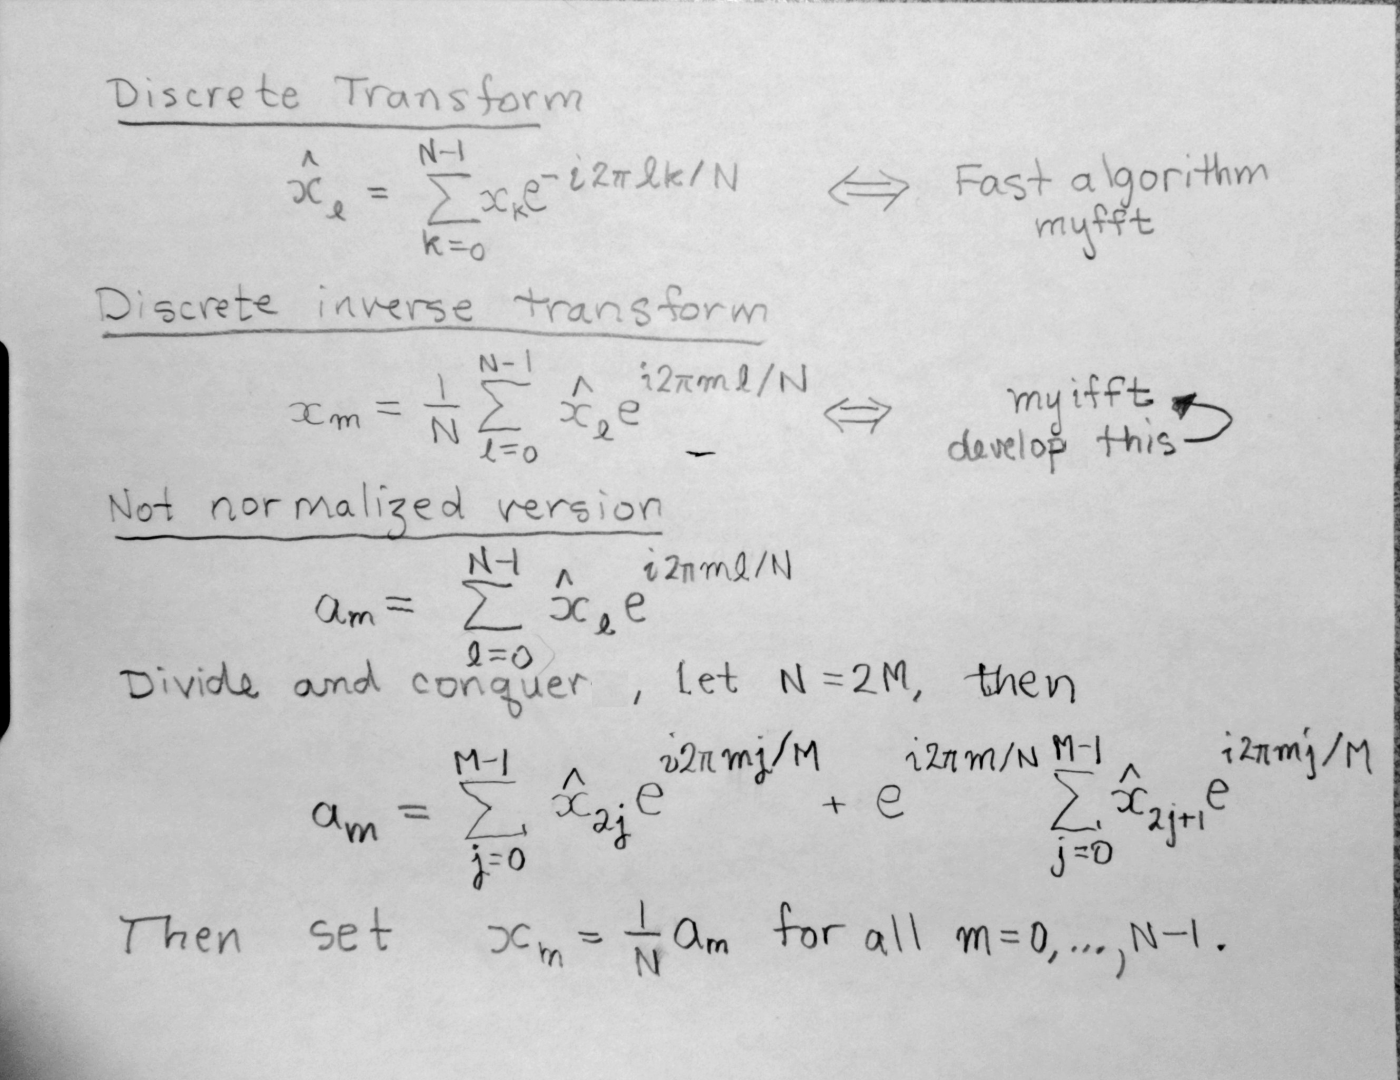 Discrete Transform
x̂_ℓ = ∑_{k=0}^{N-1} x_k e^{-i2πℓk/N} ⟺ Fast algorithm
myfft
Discrete inverse transform
x_m = 1/N ∑_{ℓ=0}^{N-1} x̂_ℓ e^{i2πmℓ/N} ⟺ myifft
develop this
Not normalized version
a_m = ∑_{ℓ=0}^{N-1} x̂_ℓ e^{i2πmℓ/N}
Divide and conquer, Let N = 2M, then
a_m = ∑_{j=0}^{M-1} x̂_{2j} e^{i2πmj/M} + e^{i2πm/N} ∑_{j=0}^{M-1} x̂_{2j+1} e^{i2πmj/M}
Then set x_m = 1/N a_m for all m=0,...,N-1.